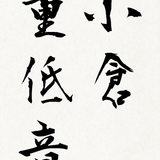 小倉
重低音